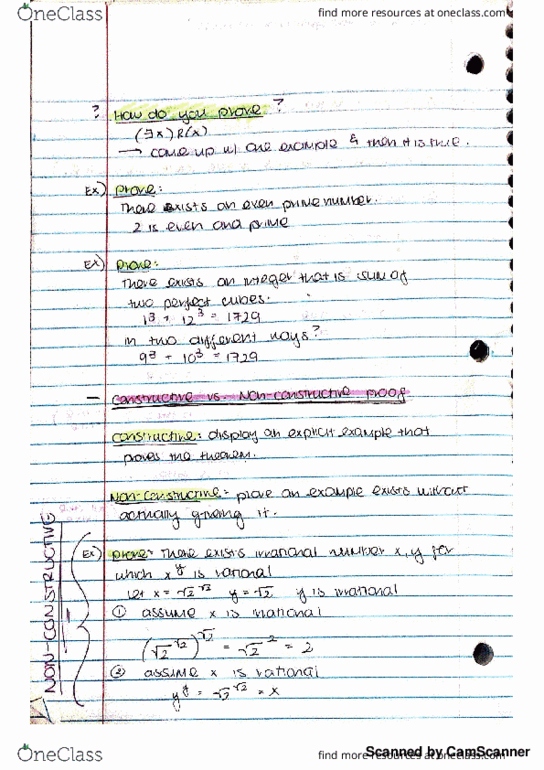 OneClass
find more resources at oneclass.com
? How do you prove ?
(∃x) R(x)
→ come up w/ one example & then it is true.
Ex) Prove:
There exists an even prime number.
2 is even and prime
Ex) Prove:
There exists an integer that is sum of
two perfect cubes.
1³ + 12³ = 1729
in two different ways?
9³ + 10³ = 1729
— Constructive vs. Non-constructive proof
Constructive: display an explicit example that
proves the theorem.
Non-constructive: prove an example exists without
actually giving it.
NON-CONSTRUCTIVE
Ex) Prove: There exists irrational number x, y for
which x^y is rational
Let x = √2^√2 y = √2 y is irrational
① assume x is irrational
(√2^√2)^√2 = √2^2 = 2
② assume x is rational
y^y = √2^√2 = x
OneClass
find more resources at oneclass.com
Scanned by CamScanner